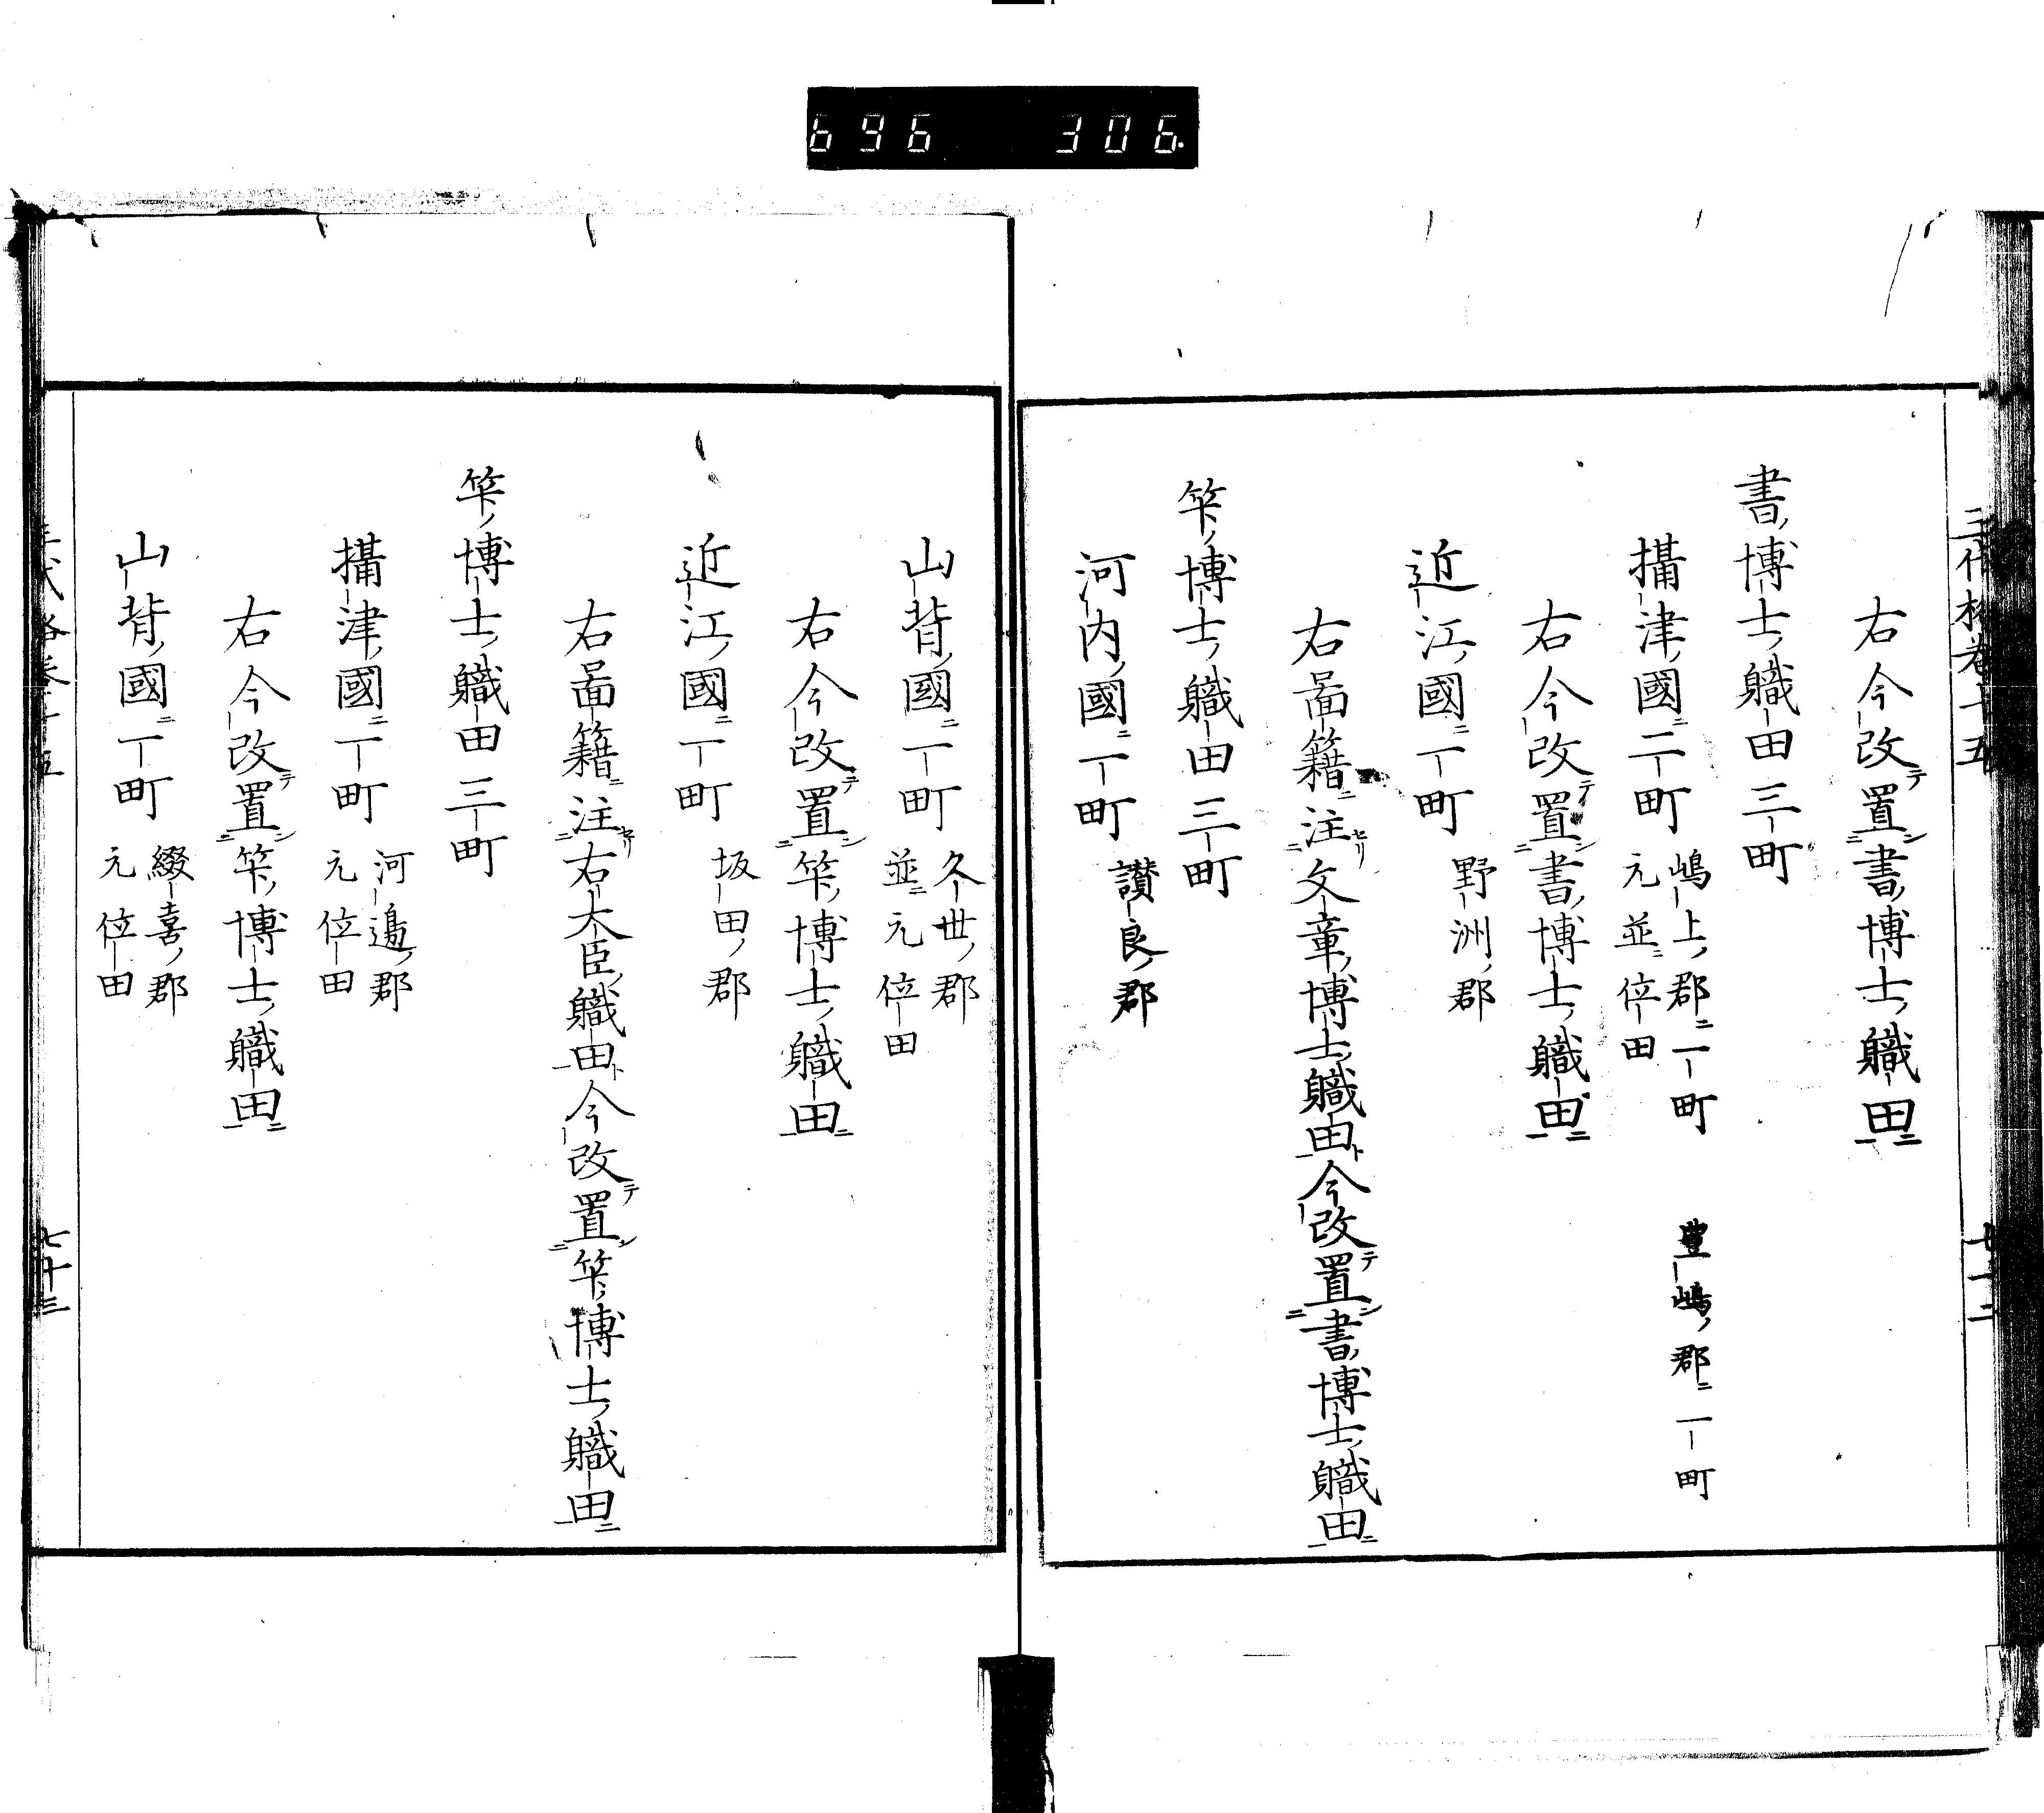 696 306
三代格巻十五
右今改置書博士職田
書博士職田三町
攝津國二町 嶋上郡一町 豊嶋郡一町
元並位田
右今改置書博士職田
近江國一町 野洲郡
右啚籍注文章博士職田今改置書博士職田
笇博士職田三町
河内國一町 讃良郡
山背國一町 久世郡
並元位田
右今改置笇博士職田
近江國一町 坂田郡
右啚籍注右大臣職田今改置笇博士職田
笇博士職田三町
攝津國一町 河邉郡
元位田
右今改置笇博士職田
山背國一町 綴喜郡
元位田
七十三